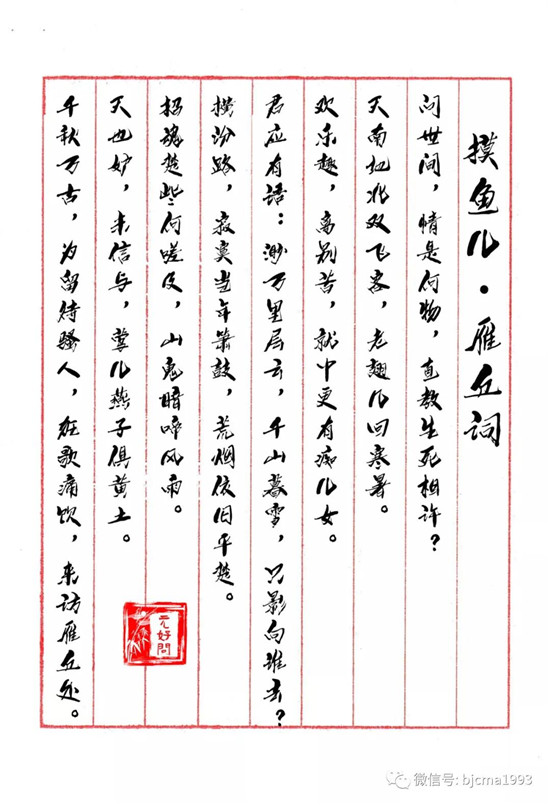 摸鱼儿·雁丘词
问世间，情是何物，直教生死相许？
天南地北双飞客，老翅几回寒暑。
欢乐趣，离别苦，就中更有痴儿女。
君应有语：渺万里层云，千山暮雪，只影向谁去？
横汾路，寂寞当年箫鼓，荒烟依旧平楚。
招魂楚些何嗟及，山鬼暗啼风雨。
天也妒，未信与，莺儿燕子俱黄土。
千秋万古，为留待骚人，狂歌痛饮，来访雁丘处。
元好問
微信号: bjcma1993